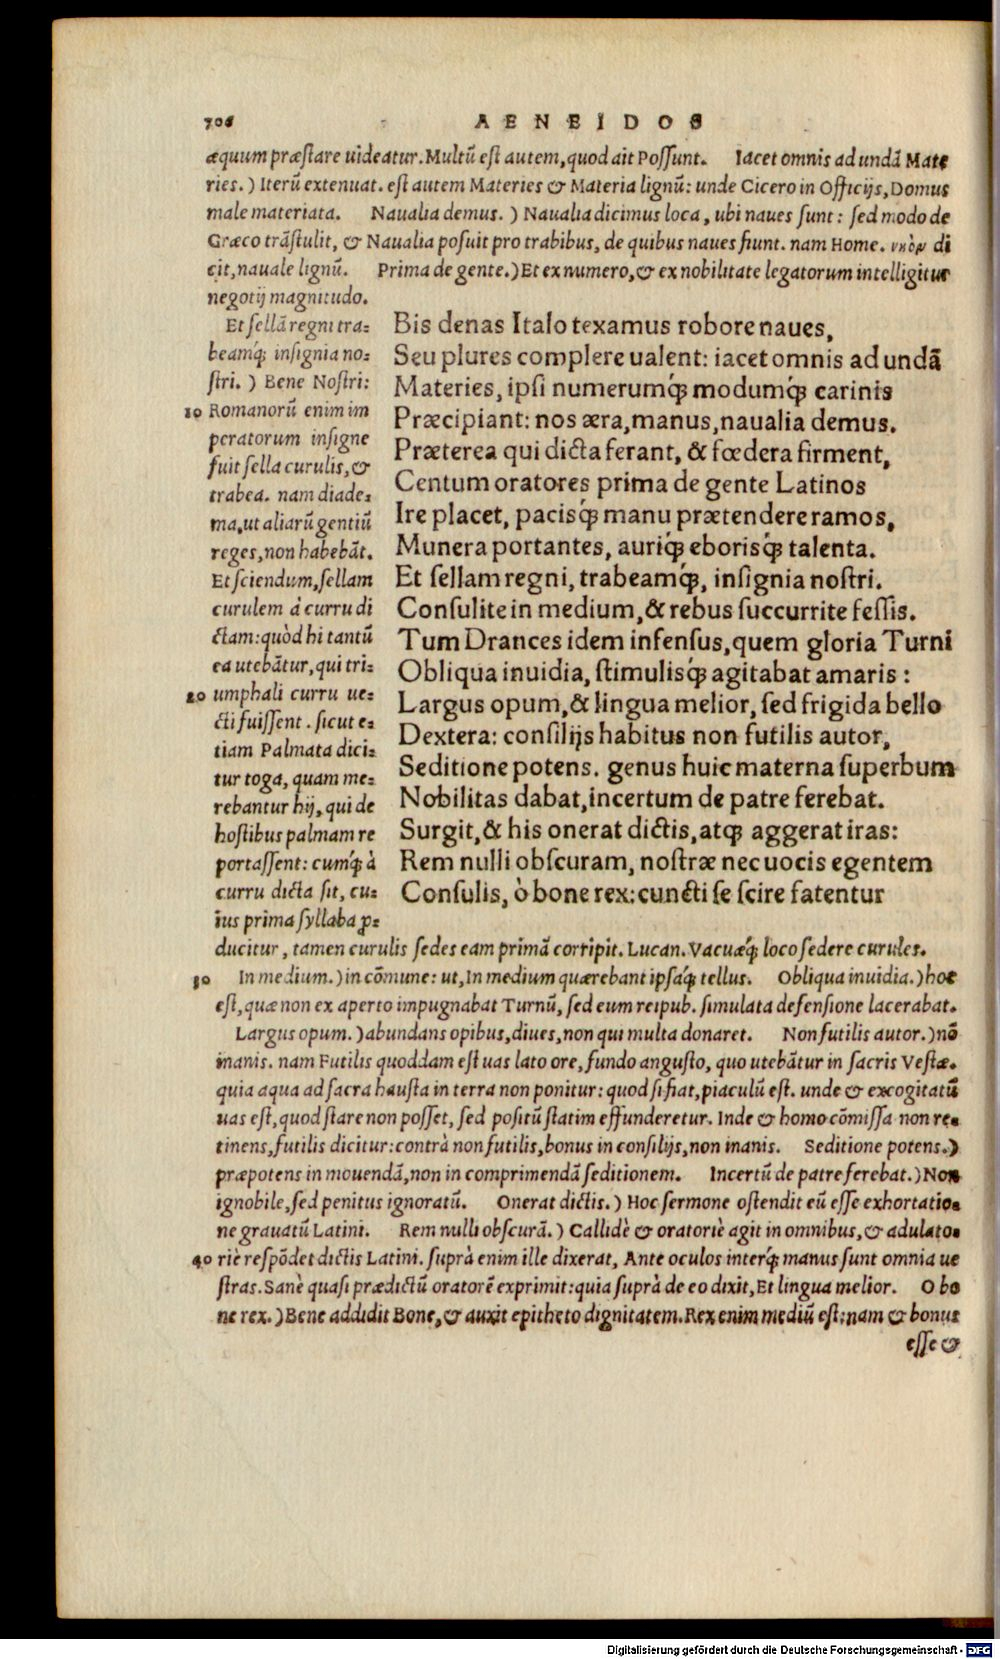 706
AENEIDOS
æquum præstare uideatur. Multũ est autem, quod ait Possunt. Iacet omnis ad undã Mate
ries.) Iterũ extenuat. est autem Materies & Materia lignũ: unde Cicero in Officijs, Domus
male materiata. Naualia demus.) Naualia dicimus loca, ubi naues sunt: sed modo de
Græco trãstulit, & Naualia posuit pro trabibus, de quibus naues fiunt. nam Home. di
cit, nauale lignũ. Prima de gente.) Et ex numero, & ex nobilitate legatorum intelligitur
negotij magnitudo.
Et sellã regni tra=
beamq́; insignia no=
stri.) Bene Nostri:
10 Romanorũ enim im
peratorum insigne
fuit sella curulis, &
trabea. nam diade=
ma, ut aliarũ gentiũ
reges, non habebãt.
Et sciendum, sellam
curulem à curru di
ctam: quòd hi tantũ
ea utebãtur, qui tri=
20 umphali curru ue=
cti fuissent. sicut e=
tiam Palmata dici=
tur toga, quam me=
rebantur hij, qui de
hostibus palmam re
portassent: cumq́; à
curru dicta sit, cu=
ius prima syllaba ꝓ=
Bis denas Italo texamus robore naues,
Seu plures complere ualent: iacet omnis ad undã
Materies, ipsi numerumq́; modumq́; carinis
Præcipiant: nos æra, manus, naualia demus.
Præterea qui dicta ferant, & fœdera firment,
Centum oratores prima de gente Latinos
Ire placet, pacisq́; manu prætendere ramos,
Munera portantes, auriq́; eborisq́; talenta.
Et sellam regni, trabeamq́;, insignia nostri.
Consulite in medium, & rebus succurrite fessis.
Tum Drances idem infensus, quem gloria Turni
Obliqua inuidia, stimulisq́; agitabat amaris:
Largus opum, & lingua melior, sed frigida bello
Dextera: consilijs habitus non futilis autor,
Seditione potens. genus huic materna superbum
Nobilitas dabat, incertum de patre ferebat.
Surgit, & his onerat dictis, atq; aggerat iras:
Rem nulli obscuram, nostræ nec uocis egentem
Consulis, ò bone rex: cuncti se scire fatentur
ducitur, tamen curulis sedes eam primã corripit. Lucan. Vacuæq́; loco sedere curules.
30 In medium.) in cõmune: ut, In medium quærebant ipsaq́; tellus. Obliqua inuidia.) hoc
est, quæ non ex aperto impugnabat Turnũ, sed eum reipub. simulata defensione lacerabat.
Largus opum.) abundans opibus, diues, non qui multa donaret. Non futilis autor.) nõ
inanis. nam Futilis quoddam est uas lato ore, fundo angusto, quo utebãtur in sacris Vestæ.
quia aqua ad sacra hausta in terra non ponitur: quod si fiat, piaculũ est. unde & excogitatũ
uas est, quod stare non posset, sed positũ statim effunderetur. Inde & homo cõmissa non re=
tinens, futilis dicitur: contrà non futilis, bonus in consilijs, non inanis. Seditione potens.)
præpotens in mouendã, non in comprimendã seditionem. Incertũ de patre ferebat.) Non
ignobile, sed penitus ignoratũ. Onerat dictis.) Hoc sermone ostendit eũ esse exhortatio=
ne grauatũ Latini. Rem nulli obscurã.) Callidè & oratoriè agit in omnibus, & adulato=
40 riè respõdet dictis Latini. suprà enim ille dixerat, Ante oculos interq́; manus sunt omnia ue
stras. Sanè quasi prædictũ oratorẽ exprimit: quia suprà de eo dixit, Et lingua melior. O bo
ne rex.) Bene addidit Bone, & auxit epitheto dignitatem. Rex enim mediũ est: nam & bonus
esse &
Digitalisierung gefördert durch die Deutsche Forschungsgemeinschaft - DFG